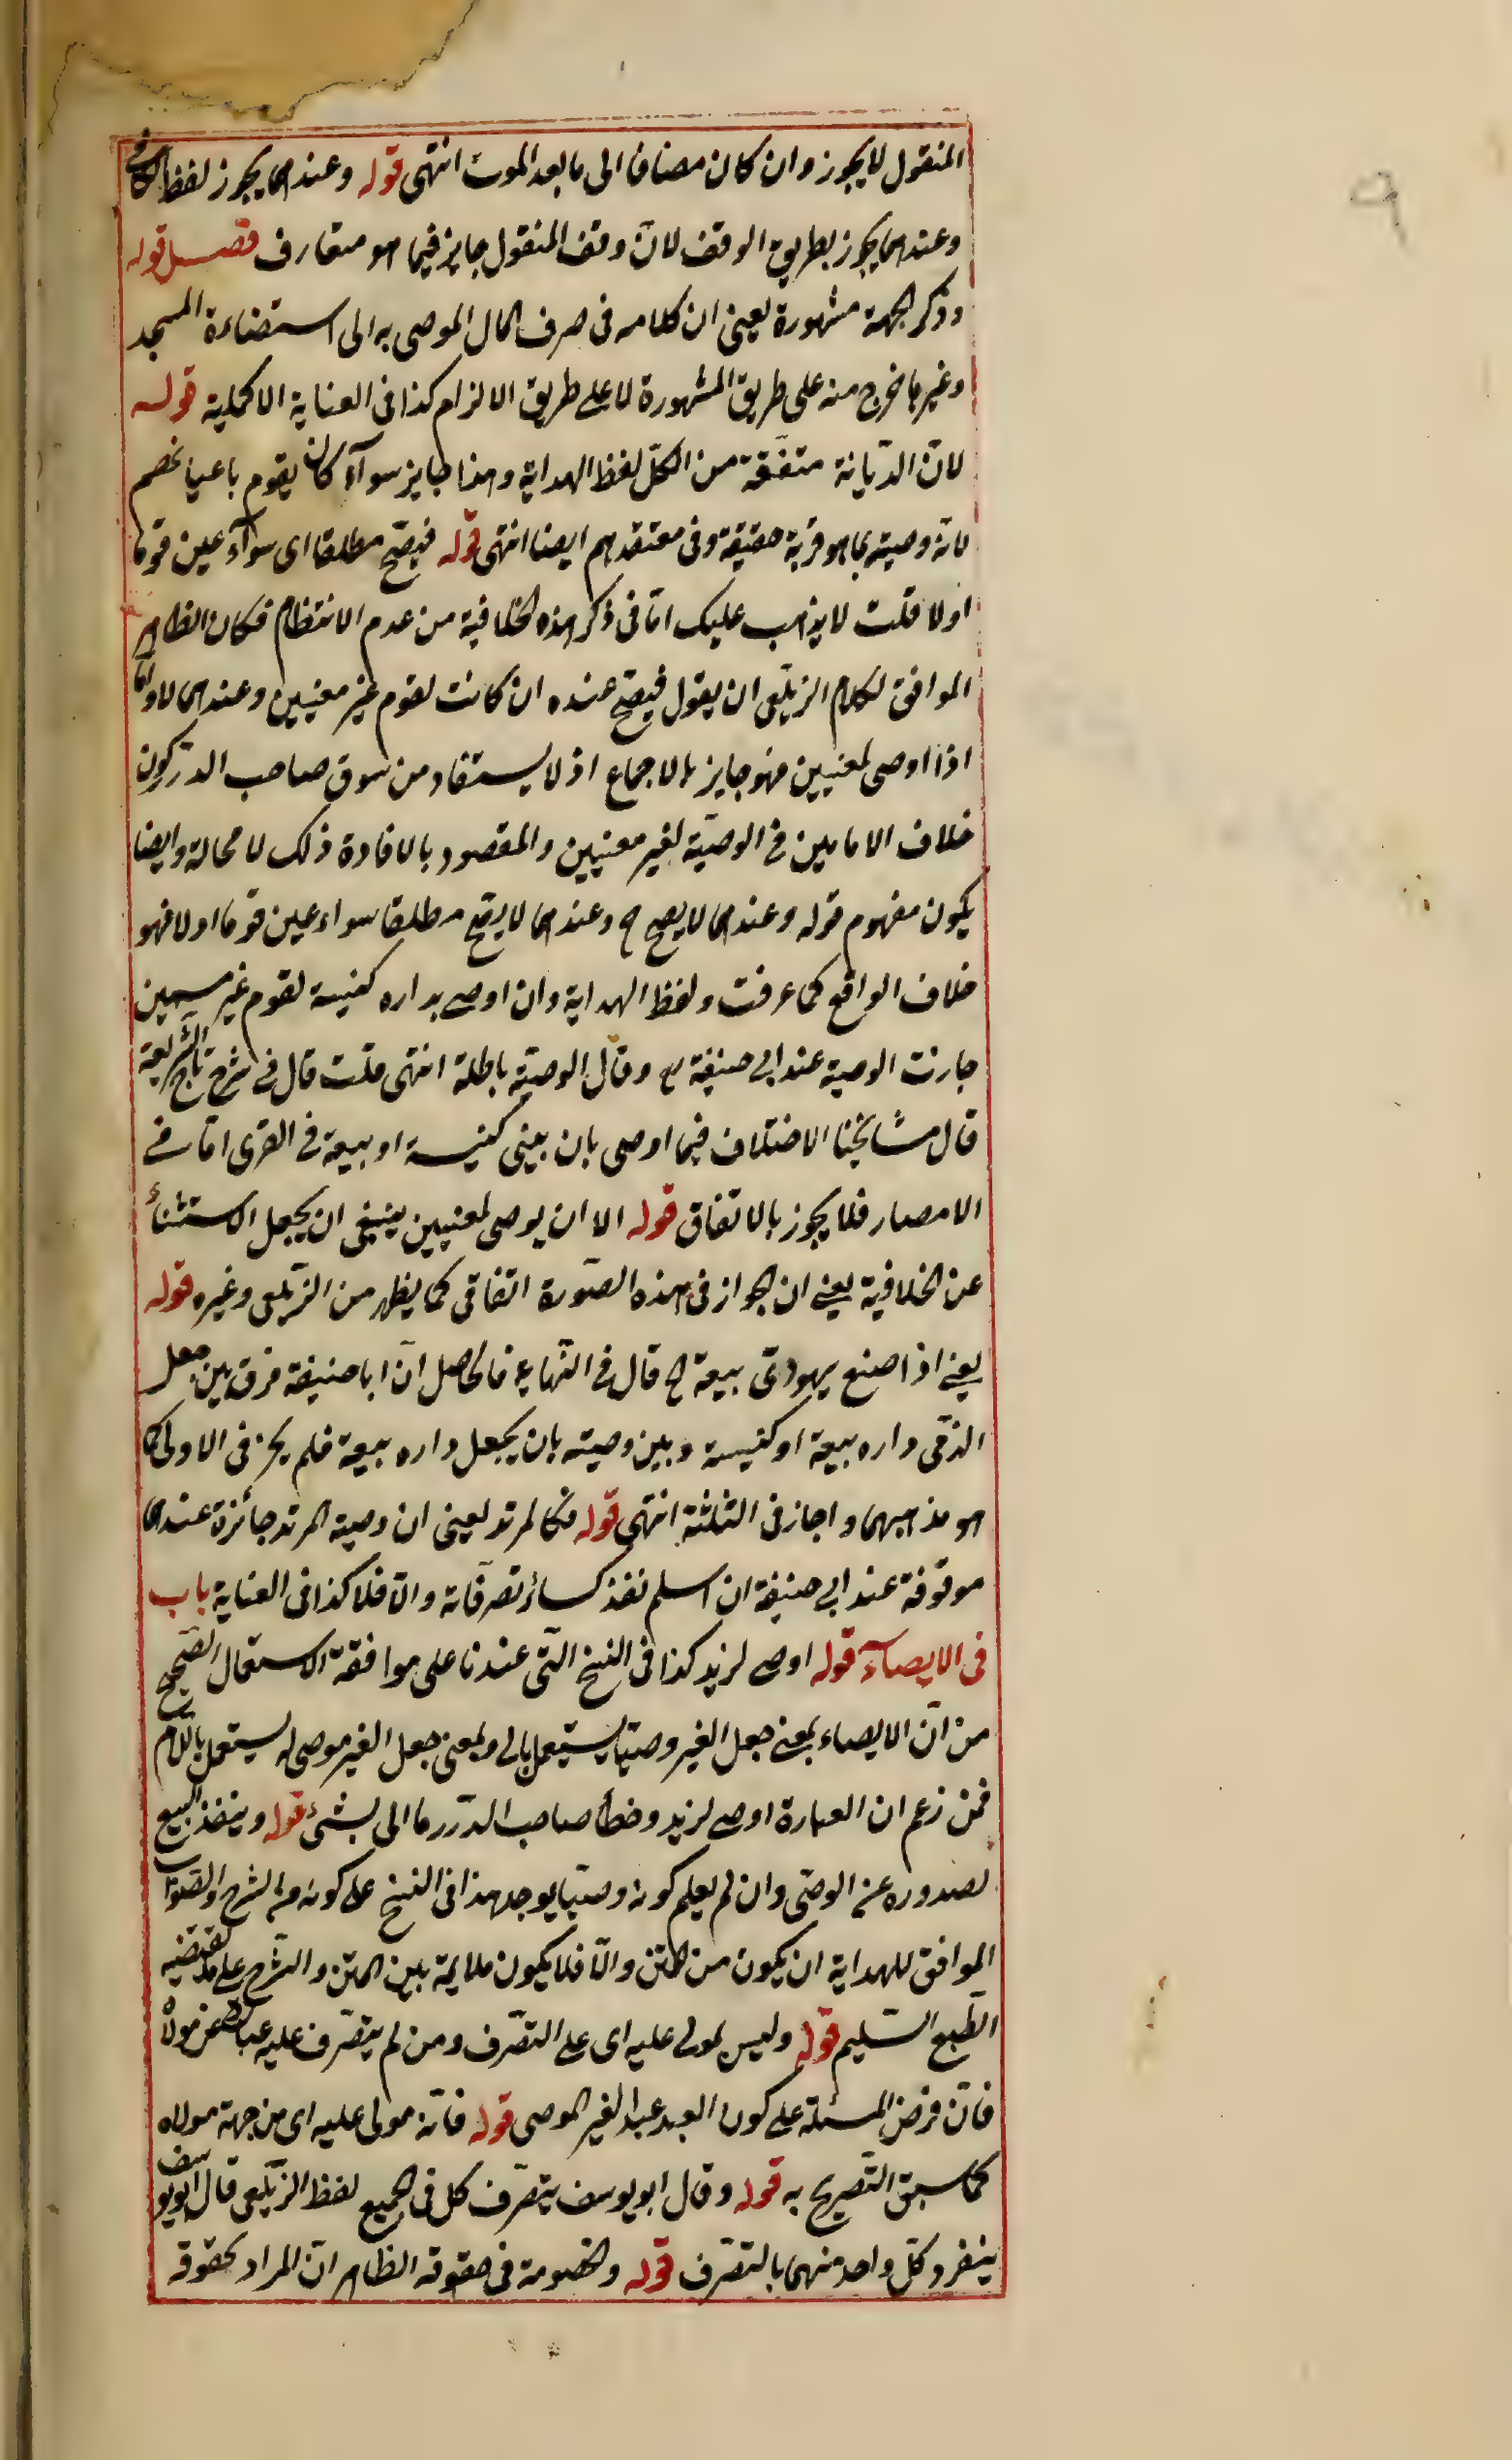 المنقول لا يجوز وان كان مضافا الى ما بعد الموت انتهى قوله وعندهما يجوز لفظ الكافي
وعندهما يجوز بطريق الوقف لانّ وقف المنقول جايز فيما هو متعارف فصل قوله
وذكر الجهة مشهورة يعنى ان كلامه فى صرف المال الموصى به الى استضاءة المسجد
وغيرها خرج منه على طريق المشهورة لا على طريق الالزام كذا فى العناية الاكملية قوله
لانّ الدّيانة متفقة من الكلّ لفظ الهداية وهذا جايز سوآء كان يقوم باعيانهم
لانّه وصية بما هو قربة حقيقة وفى معتقدهم ايضا انتهى قوله فيصحّ مطلقا اى سوآء عين قوما
اولا قلت لا يذهب عليك امّا فى ذكر هذه الخلافية من عدم الانتظام فكان الظاهر
الموافق لكلام الزيلعى ان يقول فيصحّ عنده ان كانت لقوم غير معنيين وعندهما لا وامّا
اذا اوصى لمعنيين فهو جايز بالاجماع اذ لا يستفاد من سوق صاحب الدرر كون
خلاف الامامين فى الوصيّة لغير معنيين والمقصود بالافادة ذلك لا محالة وايضا
يكون مفهوم قوله وعندهما لا يصح ح وعندهما لا يصحّ مطلقا سواء عين قوما اولا فهو
خلاف الواقع كما عرفت ولفظ الهداية وان اوصى بداره كنيسة لقوم غير مسمين
جازت الوصية عند ابى حنيفة رح وقالا الوصيّة باطلة انتهى قلت قال فى شرح تاج الشريعة
قال مشايخنا الاختلاف فيما اوصى بان يبنى كنيسة او بيعة فى القرى امّا فى
الامصار فلا يجوز بالاتفاق قوله الا ان يوصى لمعنيين ينبغى ان يجعل الاستثنآء
عن الخلافية يعنى ان الجواز فى هذه الصّورة اتفاقى كما يظهر من الزّيلعى وغيره قوله
يعنى اذا صنع يهودىّ بيعة الخ قال فى النّهاية فالحاصل انّ ابا حنيفة فرق بين جعل
الذمّى داره بيعة او كنيسة وبين وصيته بان يجعل داره بيعة فلم يجز فى الاولى كما
هو مذهبهما واجاز فى الثلثة انتهى قوله فكالمرتد يعنى ان وصية المرتد جائزة عندهما
موقوفة عند ابى حنيفة ان اسلم نفذ كسائر تصرّفاته والّا فلا كذا فى العناية باب
فى الايصآء قوله اوصى لزيد كذا فى النسخ الّتى عندنا على موافقة الاستعمال الصّحيح
من انّ الايصاء بمعنى جعل الغير وصيّا يستعمل بالى وبمعنى جعل الغير موصى له يستعمل بالّلام
فمن زعم ان العبارة اوصى لزيد وخطأ صاحب الدّرر ما اتى بشئ قوله وينفذ البيع
لصدوره عن الوصّى وان لم يعلم كونه وصيّا يوجد هذا فى النسخ على كونه من الشرح والصّواب
الموافق للهداية ان يكون من المتن والّا فلا يكون ملايمة بين المتن والشّرح على ما يقتضيه
الطّبع السّليم قوله وليس بمولى عليه اى على التصّرف ومن لم يتصّرف عليه عبدا لغير مولاه
فانّ فرض المسئلة على كون العبد عبدا لغير الموصى قوله فانّه مولى عليه اى من جهة مولاه
كما سبق التّصريح به قوله وقال ابو يوسف يتصّرف كل فى الجميع لفظ الزّيلعى قال ابو يوسف
ينفرد كلّ واحد منهما بالتصّرف قوله والخصومة فى حقوقه الظاهر انّ المراد بحقوقه